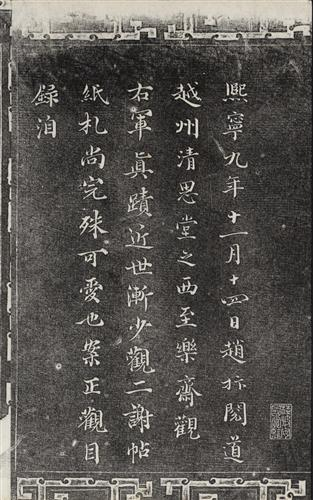 熙寧九年十一月十四日趙抃閱道
越州清思堂之西至樂齋觀
右軍真蹟近世漸少觀二謝帖
紙札尚完殊可愛也案正觀目
録洎